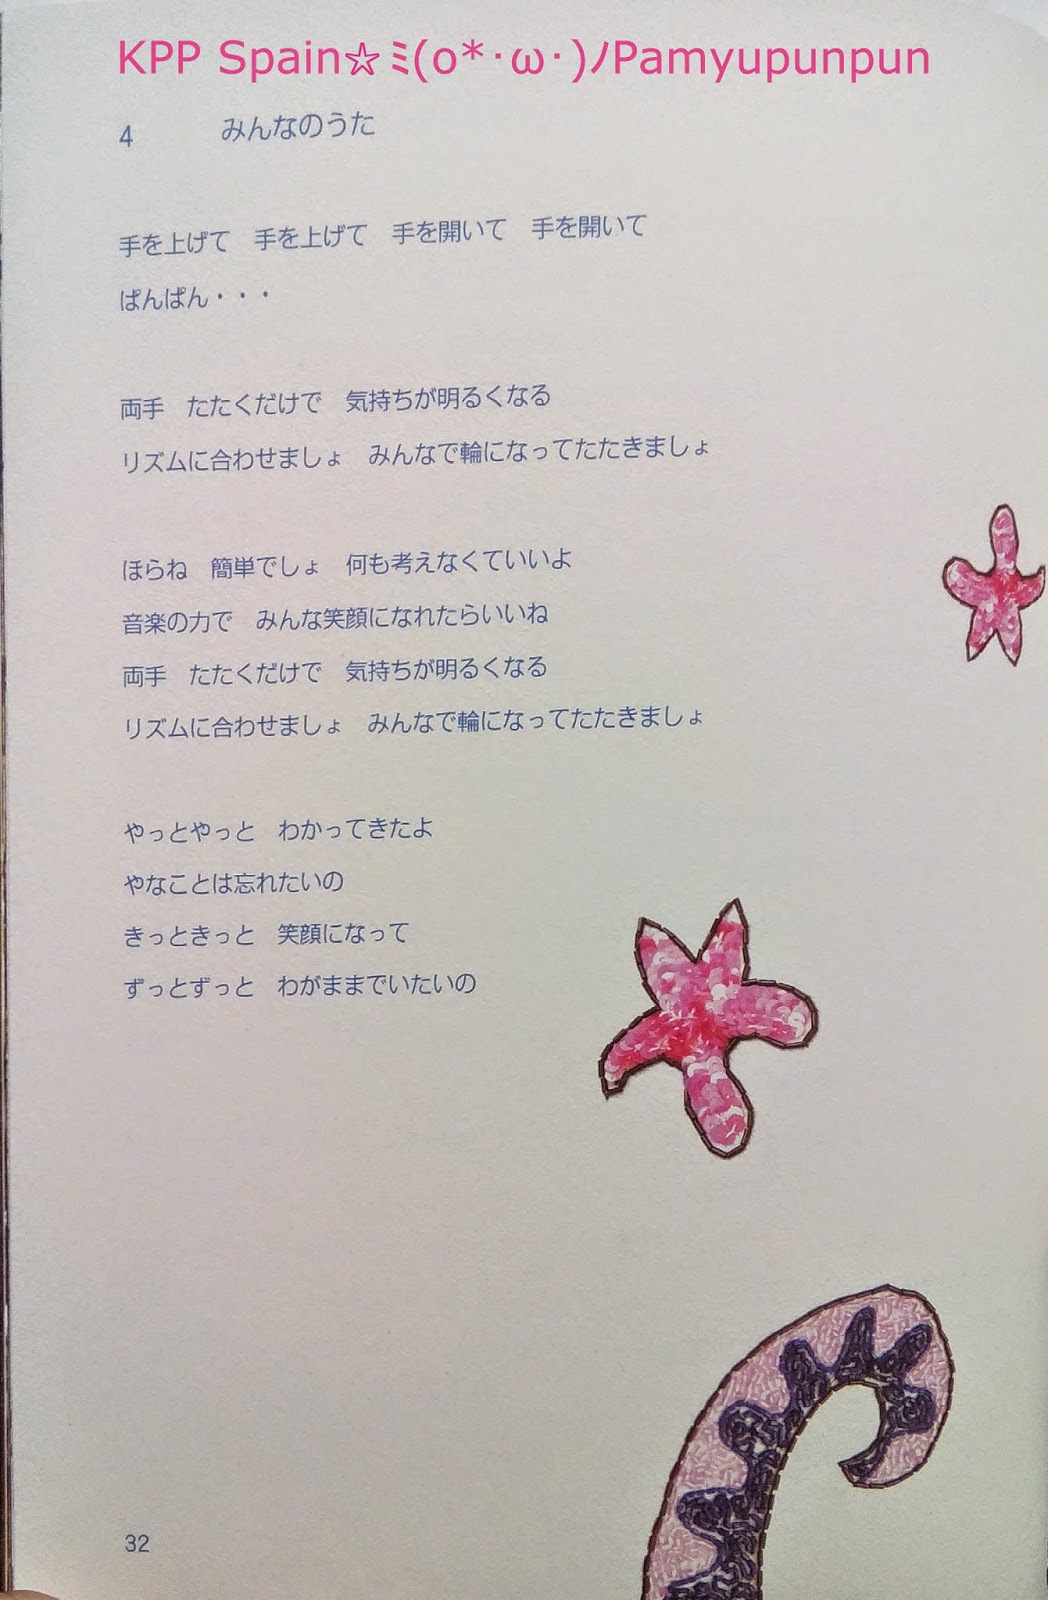 KPP Spain☆ミ(o*･ω･)ﾉPamyupunpun
4 みんなのうた
手を上げて 手を上げて 手を開いて 手を開いて
ぱんぱん・・・
両手 たたくだけで 気持ちが明るくなる
リズムに合わせましょ みんなで輪になってたたきましょ
ほらね 簡単でしょ 何も考えなくていいよ
音楽の力で みんな笑顔になれたらいいね
両手 たたくだけで 気持ちが明るくなる
リズムに合わせましょ みんなで輪になってたたきましょ
やっとやっと わかってきたよ
やなことは忘れたいの
きっときっと 笑顔になって
ずっとずっと わがままでいたいの
32